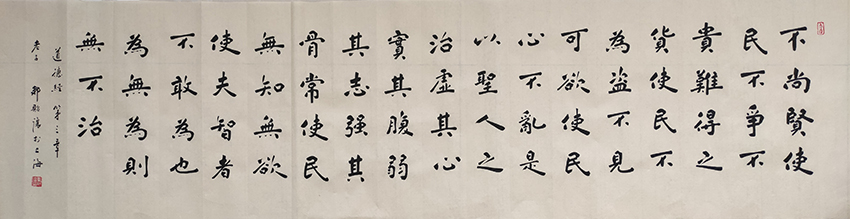 不尚賢使
民不爭不
貴難得之
貨使民不
為盜不見
可欲使民
心不亂是
以聖人之
治虛其心
實其腹弱
其志强其
骨常使民
無知無欲
使夫智者
不敢為也
為無為則
無不治
道德經 第三章
老子 於上海